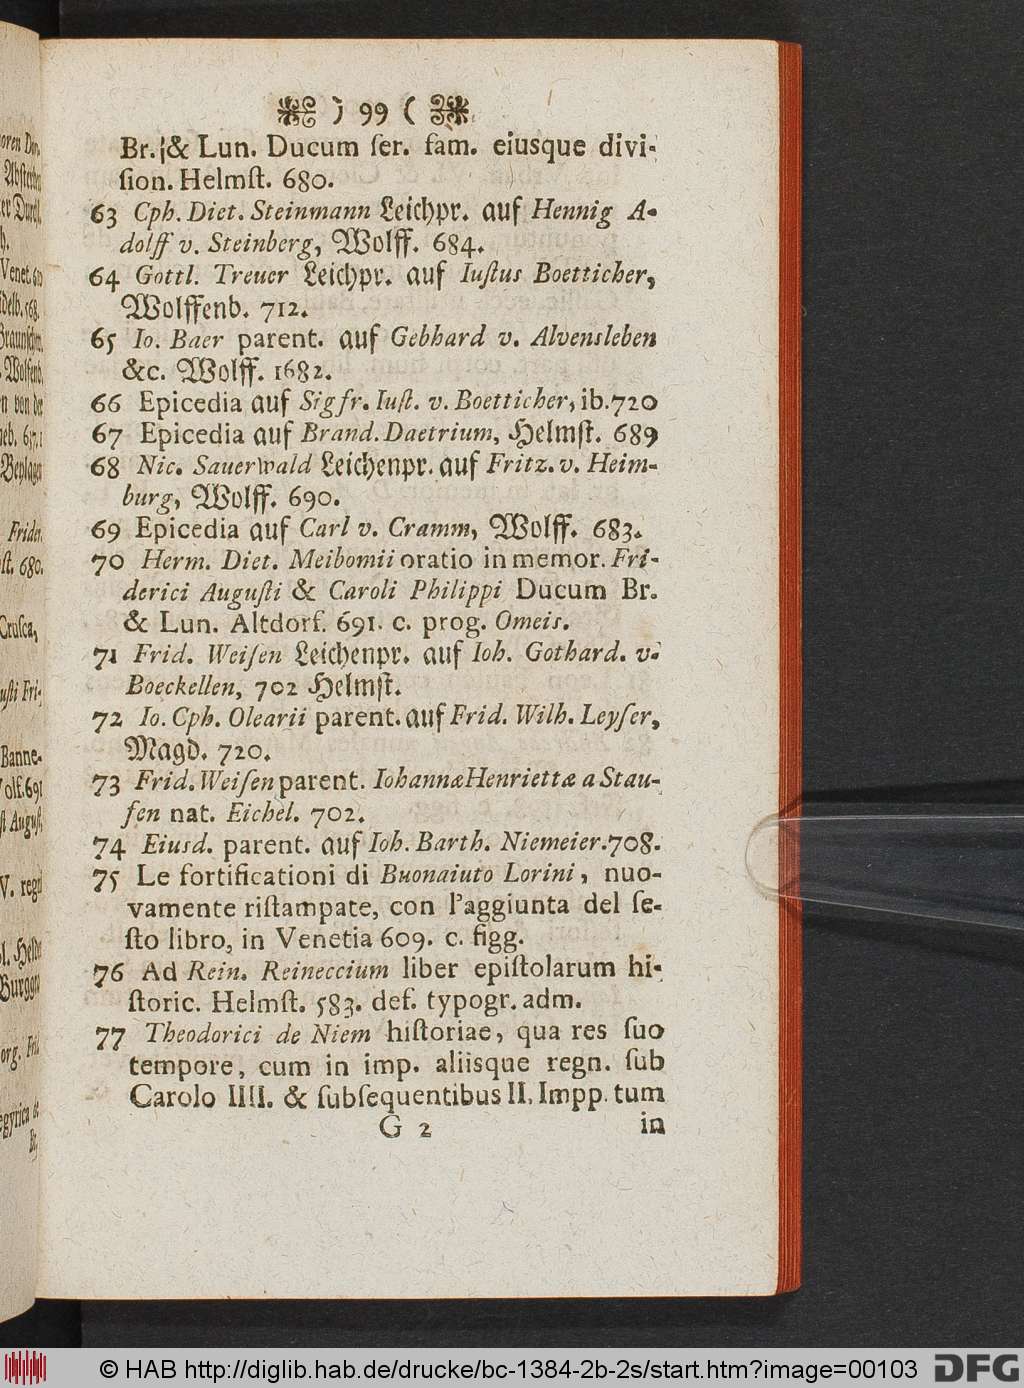 ) 99 (
Br. & Lun. Ducum ſer. fam. eiusque divi-
ſion. Helmſt. 680.
63 Cph. Diet. Steinmann Leichpr. auf Hennig A-
dolff v. Steinberg, Wolff. 684.
64 Gottl. Treuer Leichpr. auf Iuſtus Boetticher,
Wolffenb. 712.
65 Io. Baer parent. auf Gebhard v. Alvensleben
&c. Wolff. 1682.
66 Epicedia auf Sigfr. Iuſt. v. Boetticher, ib. 720
67 Epicedia auf Brand. Daetrium, Helmſt. 689
68 Nic. Sauerwald Leichenpr. auf Fritz. v. Heim-
burg, Wolff. 690.
69 Epicedia auf Carl v. Cramm, Wolff. 683.
70 Herm. Diet. Meibomii oratio in memor. Fri-
derici Auguſti & Caroli Philippi Ducum Br.
& Lun. Altdorf. 691. c. prog. Omeis.
71 Frid. Weiſen Leichenpr. auf Ioh. Gothard. v.
Boeckellen, 702 Helmſt.
72 Io. Cph. Olearii parent. auf Frid. Wilh. Leyſer,
Magd. 720.
73 Frid. Weiſen parent. Iohannæ Henriettæ a Stau-
fen nat. Eichel. 702.
74 Eiusd. parent. auf Ioh. Barth. Niemeier. 708.
75 Le fortificationi di Buonaiuto Lorini, nuo-
vamente riſtampate, con l'aggiunta del ſe-
ſto libro, in Venetia 609. c. figg.
76 Ad Rein. Reineccium liber epiſtolarum hi-
ſtoric. Helmſt. 583. def. typogr. adm.
77 Theodorici de Niem hiſtoriae, qua res ſuo
tempore, cum in imp. aliisque regn. ſub
Carolo IIII. & ſubſequentibus II. Impp. tum
G 2 in
© HAB http://diglib.hab.de/drucke/bc-1384-2b-2s/start.htm?image=00103
DFG